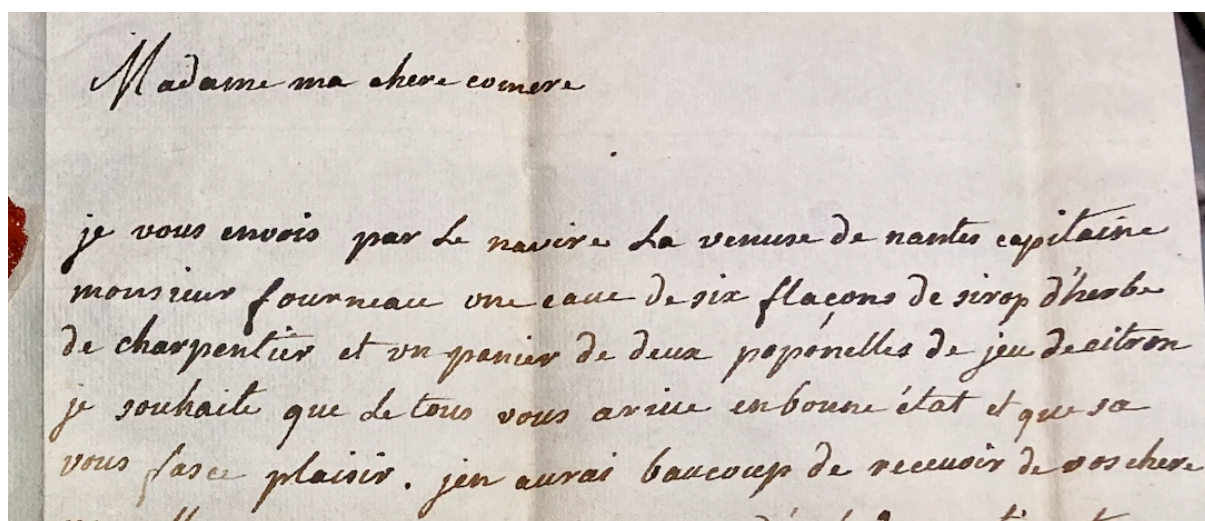 Madame ma chere comere
je vous envois par le navire la venuse de nantes capitaine
monsieur fourneau une cave de six flaçons de sirop d'herbe
de charpentier et un panier de deux poponelles de jeu de citron
je souhaite que le tous vous arive en bonne état et que sa
vous fasce plaisir. jen aurai baucoup de recevoir de vos chere